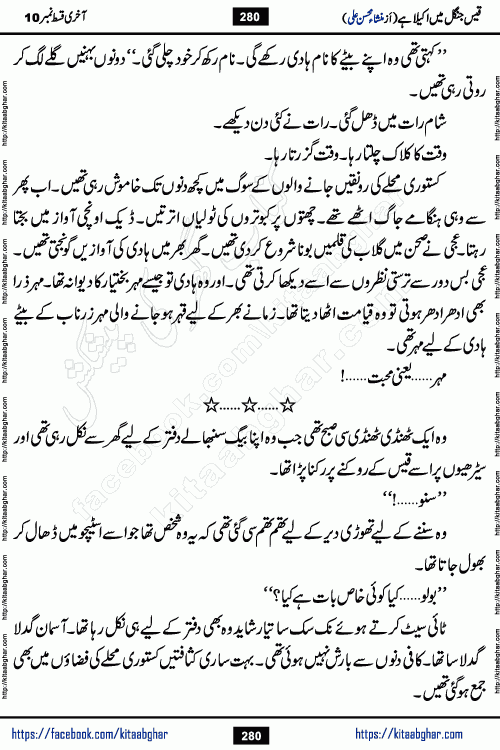 قیس جنگل میں اکیلا ہے (از منشاء محسن علی) 280 آخری قسط نمبر 10
’’کہتی تھی وہ اپنے بیٹے کا نام ہادی رکھے گی۔ نام رکھ کر خود چلی گئی۔‘‘ دونوں بہنیں گلے لگ کر
روتی رہی تھیں۔
شام رات میں ڈھل گئی۔ رات نے کئی دن دیکھے۔
وقت کا کلاک چلتا رہا۔ وقت گزرتا رہا۔
کستوری محلے کی رونقیں جانے والوں کے سوگ میں کچھ دنوں تک خاموش رہی تھیں۔ اب پھر
سے وہی ہنگامے جاگ اٹھے تھے۔ چھتوں پر کبوتروں کی ٹولیاں اترتیں۔ ڈیک اونچی آواز میں بجتا
رہتا۔ عجی نے صحن میں گلاب کی قلمیں بونا شروع کر دی تھیں۔ گھر بھر میں ہادی کی آوازیں گونجتی تھیں۔
عجی بس دور سے ترستی نظروں سے اسے دیکھا کرتی تھی۔ اور وہ ہادی تو جیسے مہر بختیار کا دیوانہ تھا۔ مہر ذرا
بھی ادھر ادھر ہوتی تو وہ قیامت اٹھا دیتا تھا۔ زمانے بھر کے لیے قہر ہو جانے والی مہر زرناب کے بیٹے
ہادی کے لیے مہر تھی۔
مہر......یعنی محبت......!
☆......☆......☆
وہ ایک ٹھنڈی ٹھنڈی سی صبح تھی جب وہ اپنا بیگ سنبھالے دفتر کے لیے گھر سے نکل رہی تھی اور
سیڑھیوں پر اسے قیس کے روکنے پر رکنا پڑا تھا۔
’’سنو......!‘‘
وہ سننے کے لیے تھوڑی دیر کے لیے تھم تھم سی گئی تھی کہ یہ وہ شخص تھا جو اسے اسٹیچو میں ڈھال کر
بھول جاتا تھا۔
’’بولو......کیا کوئی خاص بات ہے کیا؟‘‘
ٹائی سیٹ کرتے ہوئے نک سک سا تیار شاید وہ بھی دفتر کے لیے ہی نکل رہا تھا۔ آسمان گدلا
گدلا سا تھا۔ کافی دنوں سے بارش نہیں ہوئی تھی۔ بہت ساری کثافتیں کستوری محلے کی فضاؤں میں بھی
جمع ہو گئی تھیں۔
https://facebook.com/kitaabghar 280 https://kitaabghar.com